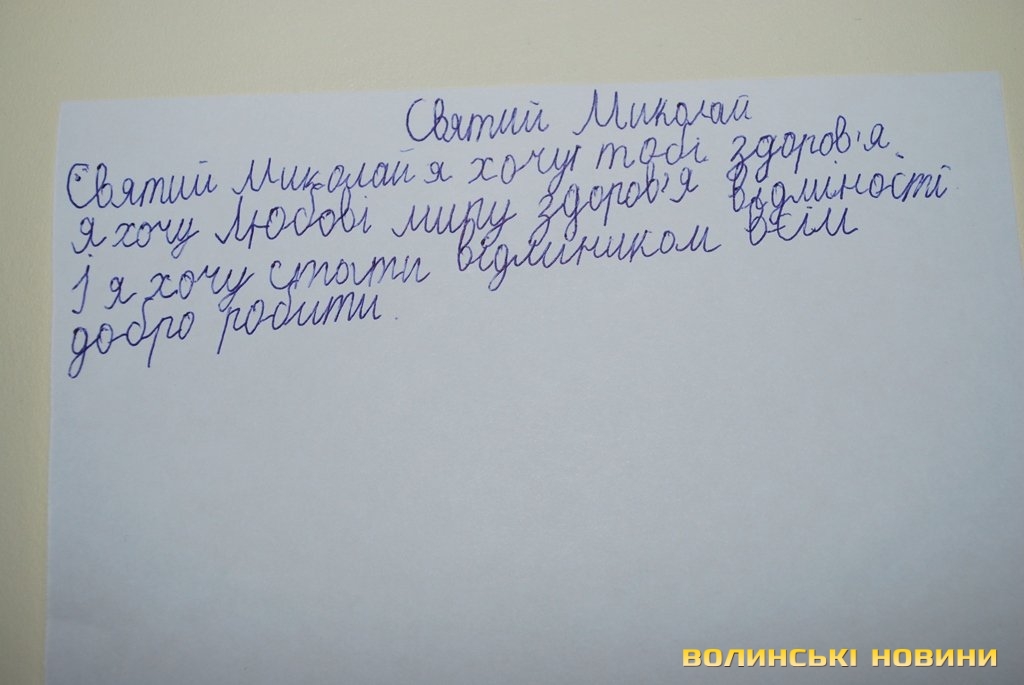 Святий Миколай
Святий Миколай я хочу тобі здоров'я.
Я хочу любові миру здоров'я відміності
І я хочу стати відмиником всім
добро робити.
ВОЛИНСЬКІ НОВИНИ